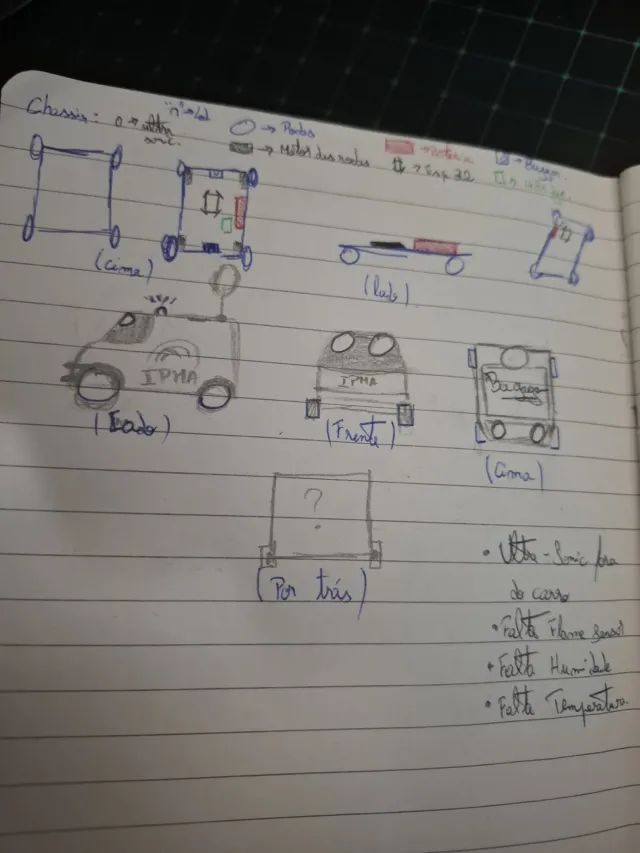 Chassis: O → ultra "n" → led
sonic.
O → Rodas
→ Motor das rodas
→ Bateria
→ Esp 32
→ Buzzer
(cima)
(lado)
IPMA
IPMA
(Lado)
(Frente)
(Cima)
?
(Por trás)
• Ultra-Sonic fora
do carro
• Falta Flame Sensor
• Falta Humidade
• Falta Temperatura